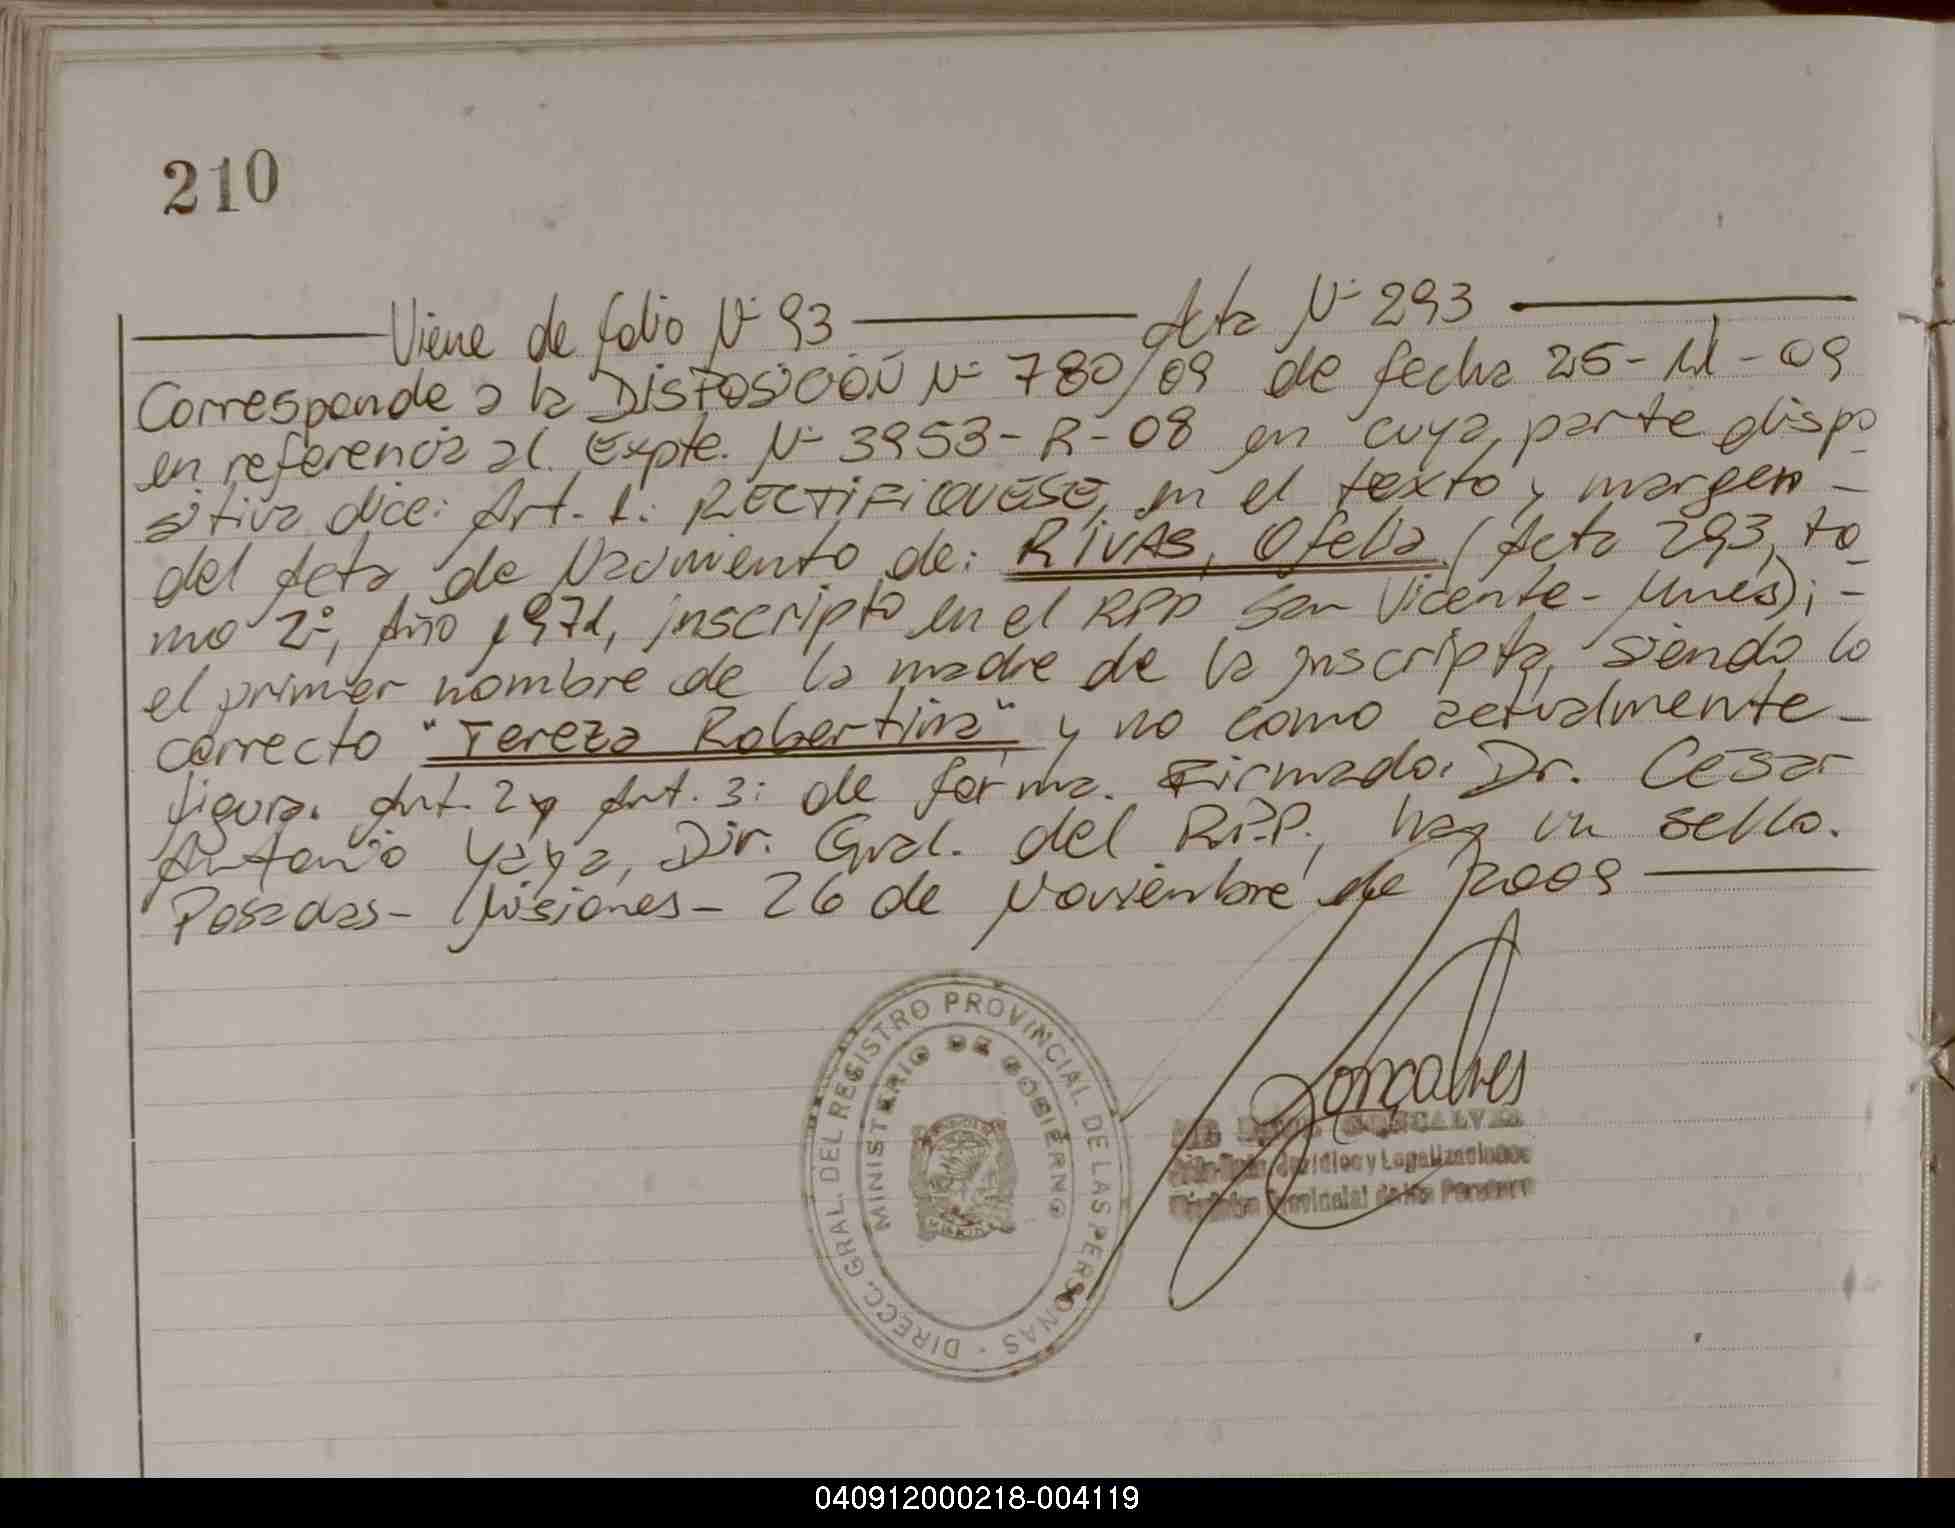 210
Viene de folio Nº 93 Acta Nº 293
Corresponde a la DISPOSICIÓN Nº 780/09 de fecha 25-11-09
en referencia al Expte. Nº 3953-R-08 en cuya parte dispo
sitiva dice: Art. 1: RECTIFIQUESE, en el texto y margen -
del Acta de Nacimiento de: RIVAS, Ofelia (Acta 293, to
mo 2º, Año 1971, inscripto en el RPP San Vicente - Mnes); -
el primer nombre de la madre de la inscripta, siendo lo
correcto "Tereza Robertina" y no como actualmente -
figura. Art. 2 y Art. 3: de forma. Firmado. Dr. Cesar
Antonio Yaya, Dir. Gral. del R.P.P., hay un sello.
Posadas - Misiones - 26 de Noviembre de 2009
DIRECC. GRAL. DEL REGISTRO PROVINCIAL DE LAS PERSONAS
MINISTERIO DE GOBIERNO
Gonçalves
GONCALVES
Jurídico y Legalizaciones
Provincial de las Personas
040912000218-004119